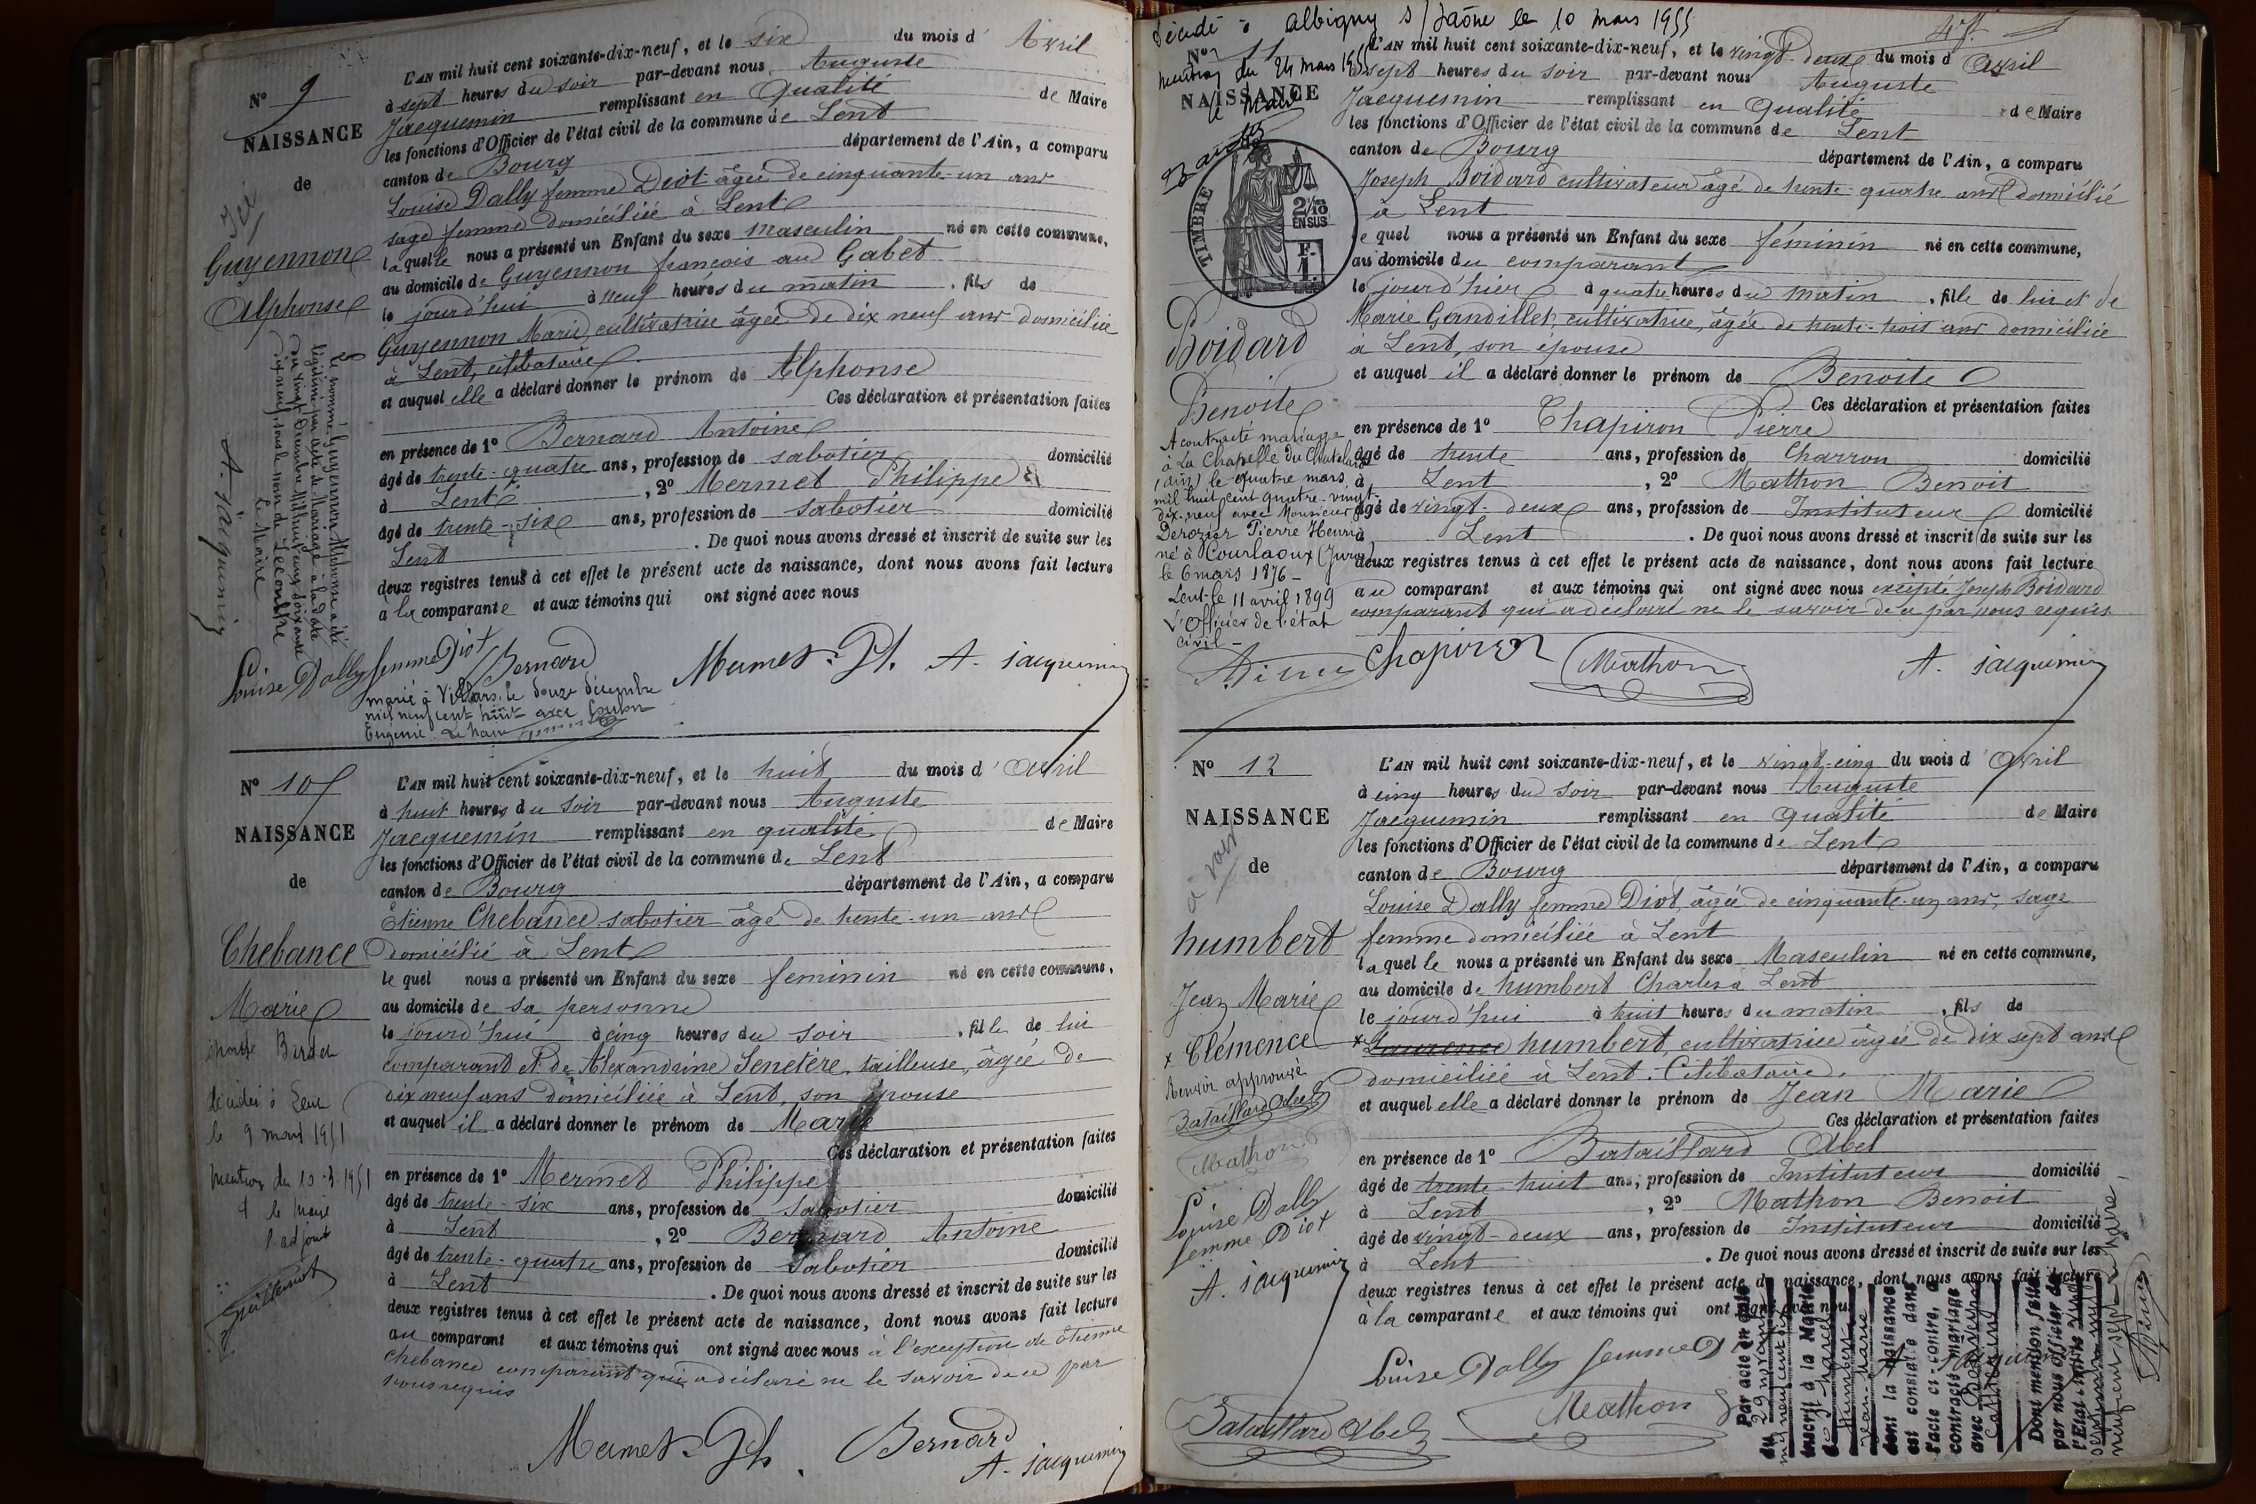 N° 9
NAISSANCE
de
Guyennon
Alphonse
L'AN mil huit cent soixante-dix-neuf, et le six du mois d'Avril
à sept heures du soir par-devant nous Auguste
Jacquemin remplissant en qualité de Maire
les fonctions d'Officier de l'état civil de la commune de Lent
canton de Bourg département de l'Ain, a comparu
Louise Dally femme Diot âgée de cinquante-un ans
sage femme domiciliée à Lent
laquelle nous a présenté un Enfant du sexe masculin né en cette commune,
au domicile de Guyennon françois au Gabet
le jourd'hui à neuf heures du matin, fils de
Guyennon Marie, cultivatrice âgée de dix neuf ans domiciliée
à Lent, célibataire
et auquel elle a déclaré donner le prénom de Alphonse
Ces déclaration et présentation faites
en présence de 1° Bernard Antoine
âgé de trente-quatre ans, profession de sabotier domicilié
à Lent, 2° Mermet Philippe
âgé de trente-six ans, profession de sabotier domicilié
Lent. De quoi nous avons dressé et inscrit de suite sur les
deux registres tenus à cet effet le présent acte de naissance, dont nous avons fait lecture
à la comparante et aux témoins qui ont signé avec nous
Le nommé Guyennon Alphonse a été
légitimé par acte de Mariage à la date
du vingt Décembre Mil huit cent soixante
dix neuf, sous le nom de Lecomtre
Le Maire
A. Jacquemin
Louise Dally femme Diot Bernard Mermet Ph. A. Jacquemin
marié à Villars, le douze décembre
mil neuf cent huit avec
Eugénie
N° 10
NAISSANCE
de
Chebance
Marie
L'AN mil huit cent soixante-dix-neuf, et le huit du mois d'Avril
à huit heures du soir par-devant nous Auguste
Jacquemin remplissant en qualité de Maire
les fonctions d'Officier de l'état civil de la commune de Lent
canton de Bourg département de l'Ain, a comparu
Etienne Chebance sabotier âgé de trente-un ans
domicilié à Lent
lequel nous a présenté un Enfant du sexe feminin né en cette commune,
au domicile de sa personne
le jourd'hui à cinq heures du soir, fille de lui
comparant et de Alexandrine Senetère, tailleuse, âgée de
dix neuf ans domiciliée à Lent, son épouse
et auquel il a déclaré donner le prénom de Marie
Ces déclaration et présentation faites
en présence de 1° Mermet Philippe
âgé de trente-six ans, profession de Sabotier domicilié
à Lent, 2° Bernard Antoine
âgé de trente-quatre ans, profession de Sabotier domicilié
à Lent. De quoi nous avons dressé et inscrit de suite sur les
deux registres tenus à cet effet le présent acte de naissance, dont nous avons fait lecture
au comparant et aux témoins qui ont signé avec nous à l'exception de Etienne
Chebance comparant qui a déclaré ne le savoir de ce par
nous requis
décédée à Lent
le 9 1951
mention du 10-3-1951
le Maire
l'adjoint
Mermet Ph. Bernard
A. Jacquemin
décédé à Albigny s/Saône le 10 mars 1955
mention du 24 mars 1955
le Maire
N° 11
NAISSANCE
TIMBRE
2/10
EN SUS
F.
1.
Boidard
Benoite
L'AN mil huit cent soixante-dix-neuf, et le vingt-deux du mois d'Avril
à sept heures du soir par-devant nous Auguste
Jacquemin remplissant en qualité de Maire
les fonctions d'Officier de l'état civil de la commune de Lent
canton de Bourg département de l'Ain, a comparu
Joseph Boidard cultivateur âgé de trente-quatre ans domicilié
à Lent
lequel nous a présenté un Enfant du sexe féminin né en cette commune,
au domicile du comparant
le jourd'hier à quatre heures du matin, fille de lui et de
Marie Gandillet, cultivatrice, âgée de trente-huit ans domiciliée
à Lent, son épouse
et auquel il a déclaré donner le prénom de Benoite
Ces déclaration et présentation faites
en présence de 1° Chapiron Pierre
âgé de trente ans, profession de Charron domicilié
à Lent, 2° Mathon Benoit
âgé de vingt-deux ans, profession de Instituteur domicilié
à Lent. De quoi nous avons dressé et inscrit de suite sur les
deux registres tenus à cet effet le présent acte de naissance, dont nous avons fait lecture
au comparant et aux témoins qui ont signé avec nous excepté Joseph Boidard
comparant qui a déclaré ne le savoir de ce par nous requis
A contracté mariage
à La Chapelle du Chatelard
(Ain) le quatre mars
mil huit cent quatre-vingt-
dix-neuf avec Monsieur
Derozier Pierre Henri
né à Courlaoux (Jura)
le 6 mars 1876 -
Lent le 11 avril 1899
L'Officier de l'état
civil -
Chapiron Mathon A. Jacquemin
N° 12
NAISSANCE
de
à voir
humbert
Jean Marie
x Clémence
Renvoi approuvé
Bataillard Abel
Mathon
Louise Dally
femme Diot
A. Jacquemin
L'AN mil huit cent soixante-dix-neuf, et le vingt-cinq du mois d'Avril
à cinq heures du soir par-devant nous Auguste
Jacquemin remplissant en qualité de Maire
les fonctions d'Officier de l'état civil de la commune de Lent
canton de Bourg département de l'Ain, a comparu
Louise Dally femme Diot, âgée de cinquante-un ans, sage
femme domiciliée à Lent
laquelle nous a présenté un Enfant du sexe Masculin né en cette commune,
au domicile de humbert Charles à Lent
le jourd'hui à huit heures du matin, fils de
x Laurence humbert, cultivatrice âgée de dix sept ans
domiciliée à Lent. Célibataire.
et auquel elle a déclaré donner le prénom de Jean Marie
Ces déclaration et présentation faites
en présence de 1° Bataillard Abel
âgé de trente huit ans, profession de Instituteur domicilié
à Lent, 2° Mathon Benoit
âgé de vingt-deux ans, profession de Instituteur domicilié
à Lent. De quoi nous avons dressé et inscrit de suite sur les
deux registres tenus à cet effet le présent acte de naissance, dont nous avons fait lecture
à la comparante et aux témoins qui ont signé avec nous
Louise Dally femme Diot
Bataillard Abel Mathon
Par acte en date
du 29 novembre
inscrit à la Mairie
humbert
Jean-Marie
dont la naissance
est constatée dans
l'acte ci-contre, a
contracté mariage
avec
Dont mention faite
par nous officier de
l'Etat